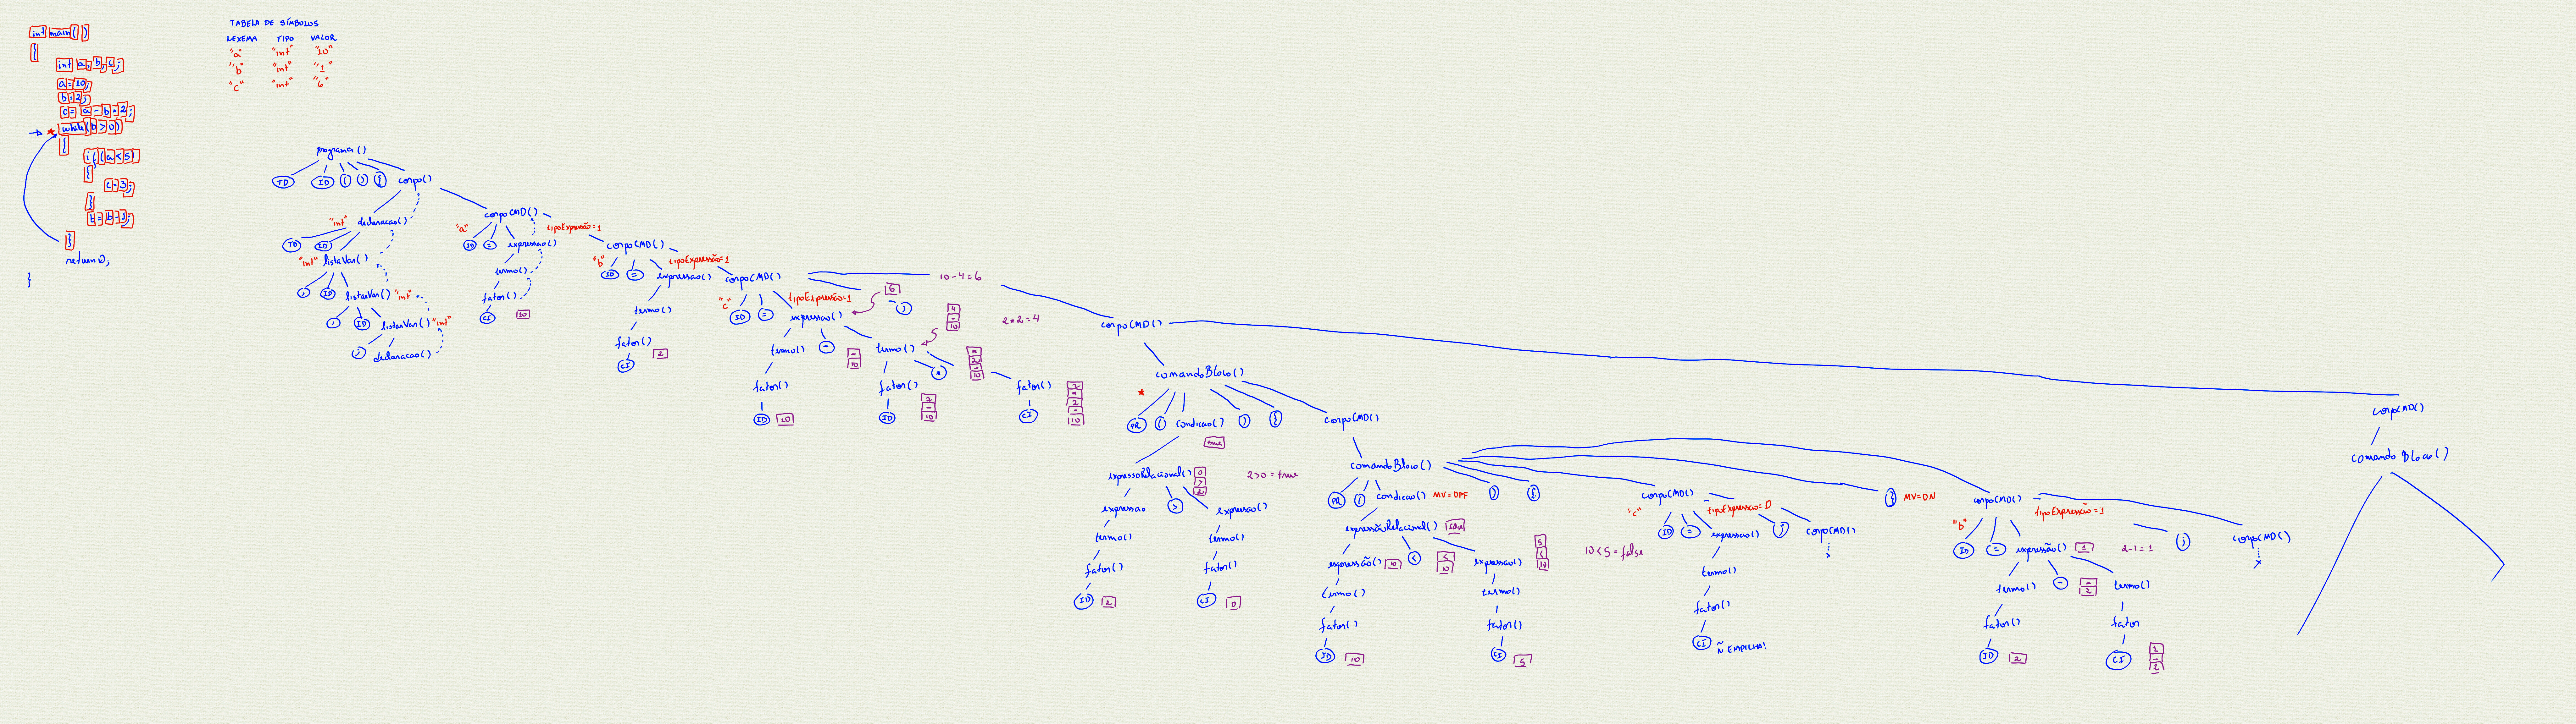 int main ( )
{
int a, b, c;
a = 10;
b = 2;
c = a - b * 2;
* while (b > 0)
{
if (a < 5)
{
c = 3;
}
b = b - 1;
}
return 0;
}
TABELA DE SÍMBOLOS
LEXEMA TIPO VALOR
"a" "int" "10"
"b" "int" "1"
"c" "int" "6"
programa ( )
TD ID ( ) { corpo( )
"int" declaracao( )
TD ID
"int" listaVar( )
, ID
listaVar( ) "int"
, ID listaVar( ) "int"
; declaracao( )
corpoCMD( )
"a" tipoExpressão=1
ID = expressao( )
termo( )
fator( )
CI 10
corpoCMD( )
"b" tipoExpressão=1
ID = expressao( )
termo( )
fator( )
CI 2
corpoCMD( )
10 - 4 = 6
"c" tipoExpressão=1 6
ID = expressao( ) ;
4
-
10
2 * 2 = 4
termo( ) - termo( )
-
10
*
2
-
10
*
fator( ) fator( ) fator( )
ID 10 ID CI
2
-
10
2
*
2
-
10
corpoCMD( )
comandoBloco( )
*
PR ( condicao( ) ) { corpoCMD( )
true
expressoRelacional( )
0
>
2
2 > 0 = true
expressao > expressao( )
termo( ) termo( )
fator( ) fator( )
ID 2 CI 0
comandoBloco( )
PR ( condicao( ) MV=OPF ) {
expressãoRelacional( )
expressão( ) 10 < expressao( )
<
10
5
<
10
10 < 5 = false
termo( ) termo( )
fator( ) fator( )
ID 10 CI 5
corpoCMD( )
"c" tipoExpressao=0
ID = expressao( ) ; corpoCMD( )
termo( )
fator( )
CI Ñ EMPILHA!
} MV=ON
corpoCMD( )
"b" tipoExpressão=1
ID = expressão( ) 1 2-1 = 1 ; corpoCMD( )
termo( ) - termo( )
-
2
fator( ) fator
ID 2 CI
1
-
2
corpoCMD( )
comando Bloco( )